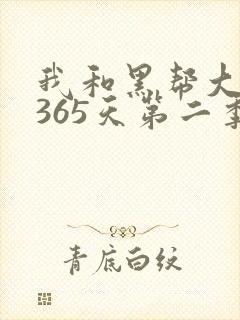 我和黑帮大
365天第二季
青底白纹